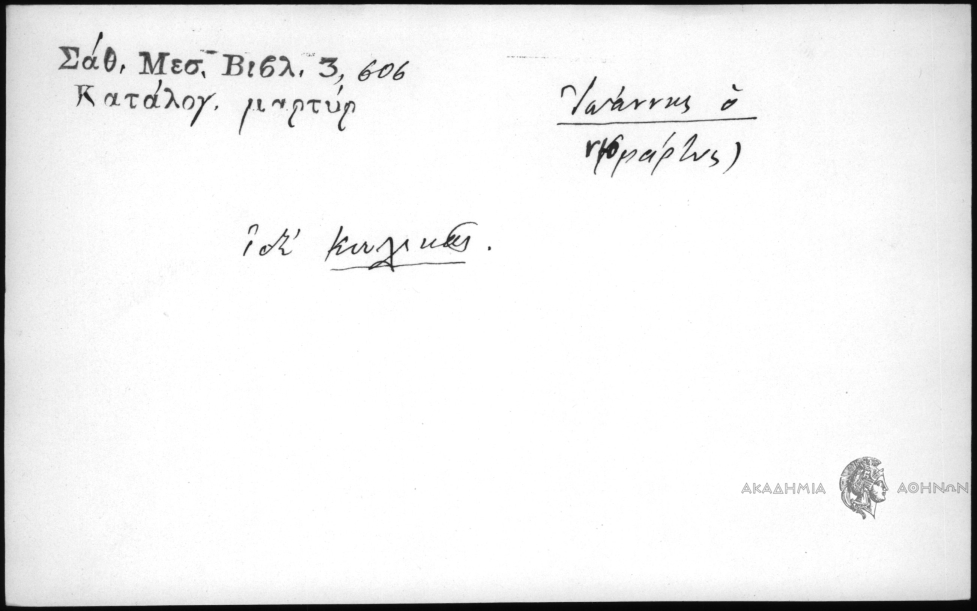 Σάθ. Μεσ. Βιβλ. 3, 606
Κατάλογ. μαρτύρ
Ἰωάννης ὁ
ἰδὲ Κουλικᾶς.
ΑΚΑΔΗΜΙΑ ΑΘΗΝΩΝ